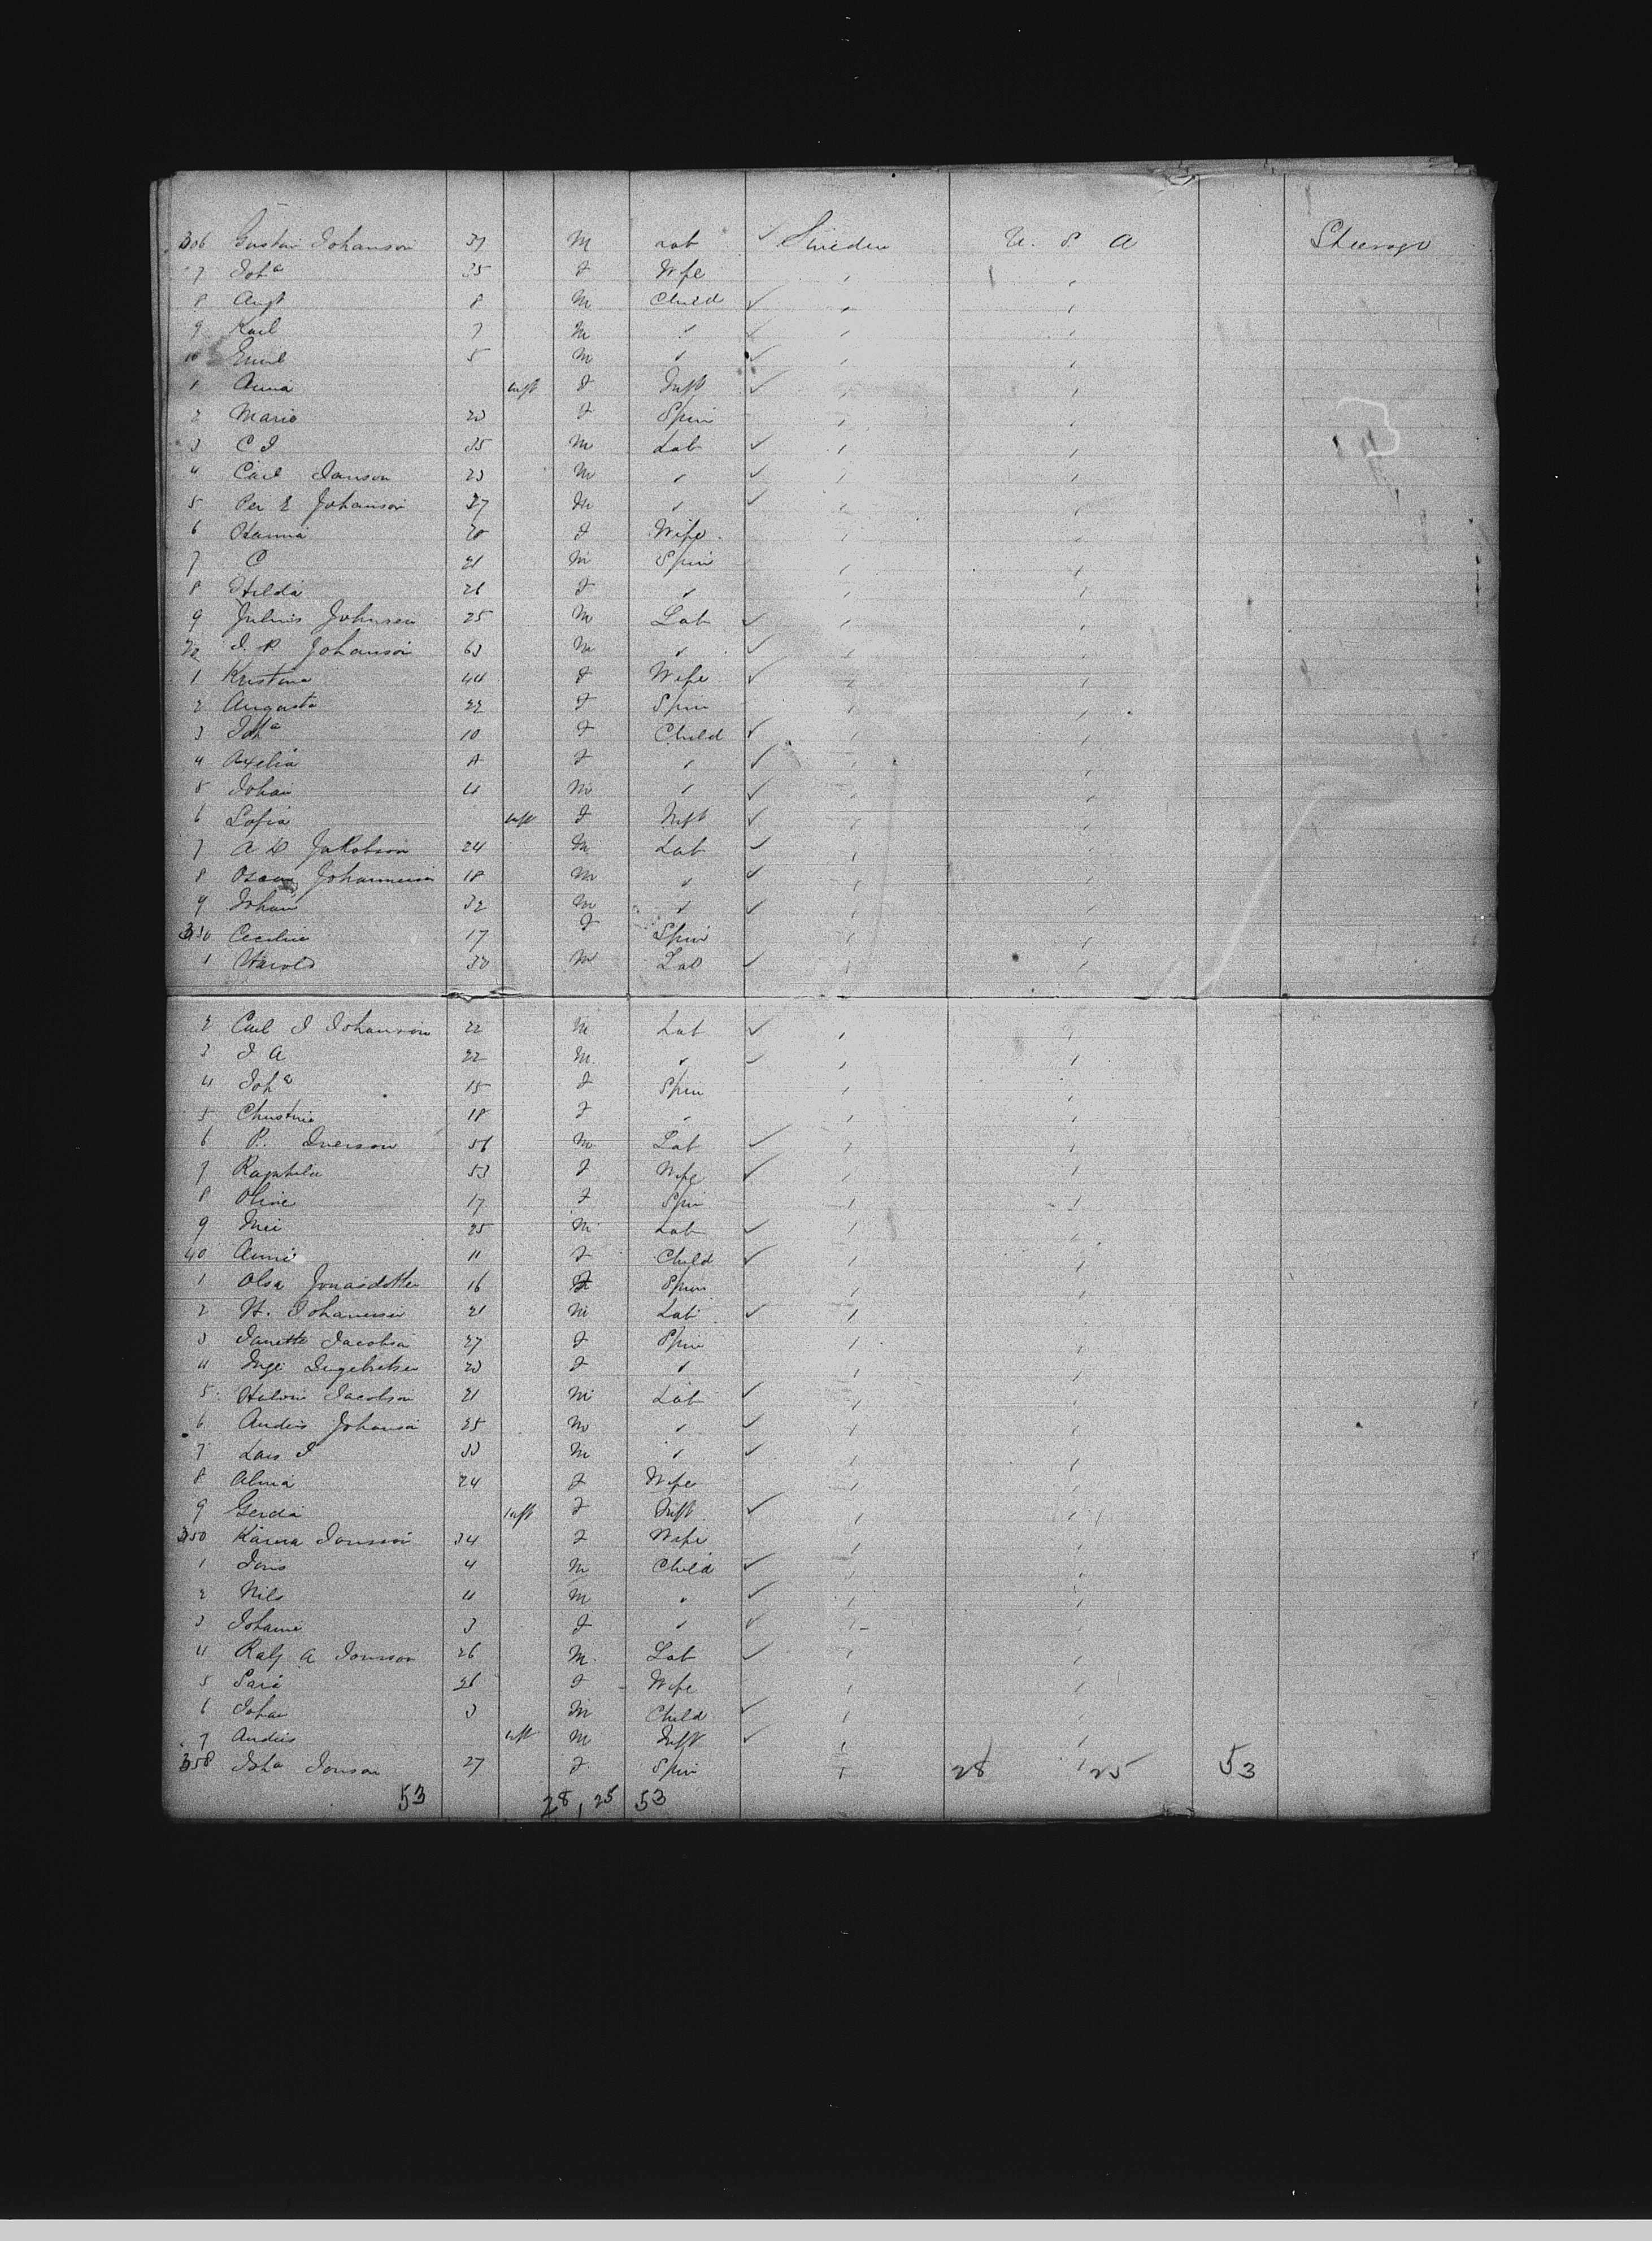 306 Gustav Johanson 37 M Lab ✓ Sweden U. S. A Steerage
7 Joha 35 F Wife
8 Augt 8 M Child ✓
9 Karl 7 M " ✓
10 Emil 5 M " ✓
1 Anna inft F Inft ✓
2 Marie 20 F Spin
3 C J 35 M Lab ✓
4 Carl Janson 23 M " ✓
5 Per E Johanson 27 M " ✓
6 Hanna 20 F Wife
7 C 21 M Spin
8 Hilda 26 F "
9 Julius Johnsen 25 M Lab ✓
20 J. P. Johanson 63 M " ✓
1 Kristina 44 F Wife ✓
2 Augusta 22 F Spin
3 Joha 10 F Child ✓
4 Axelia F " ✓
5 Johan 4 M " ✓
6 Sofia inft F Inft ✓
7 A D Jakobson 24 M Lab ✓
8 Oscar Johannesen 18 M " ✓
9 Johan 32 M " ✓
330 Cecilie 17 F Spin
1 Harold 30 M Lab ✓
2 Carl J Johanson 22 M Lab ✓
3 J A 22 M " ✓
4 Joha 15 F Spin
5 Christine 18 F "
6 P. Iverson 56 M Lab ✓
7 53 F Wife ✓
8 Oline 17 F Spin
9 25 M Lab ✓
40 Anne 11 F Child ✓
1 Olsa Jonasdotter 16 F Spin
2 H. Johannesen 21 M Lab ✓
3 Janette Jacobsen 27 F Spin
4 Inge Ingebretsen 20 F "
5 Jacobson 21 M Lab ✓
6 Anders Johanson 25 M " ✓
7 Lars J 33 M " ✓
8 Alma 24 F Wife
9 Gerda inft F Inft ✓
350 Karna Jonsson 34 F Wife
1 Jons 4 M Child ✓
2 Nils 4 M " ✓
3 Johanne 3 F " ✓
4 Ralf A Jonsson 26 M Lab ✓
5 Sara 26 F Wife
6 Johan 3 M Child ✓
7 Anders inft M Inft ✓
358 Joha Jonson 27 F Spin 28 25 53
53 28, 25 53